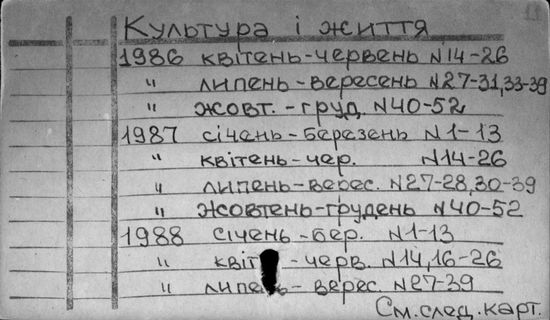 Культура і життя
1986 квітень-червень N14-26
" липень-вересень N27-31,33-39
" жовт.-груд. N40-52
1987 січень-березень N1-13
" квітень-чер. N14-26
" липень-верес. N27-28,30-39
" жовтень-грудень N40-52
1988 січень-бер. N1-13
" квіт - черв. N14,16-26
" липень - верес. N27-39
См.след.карт.